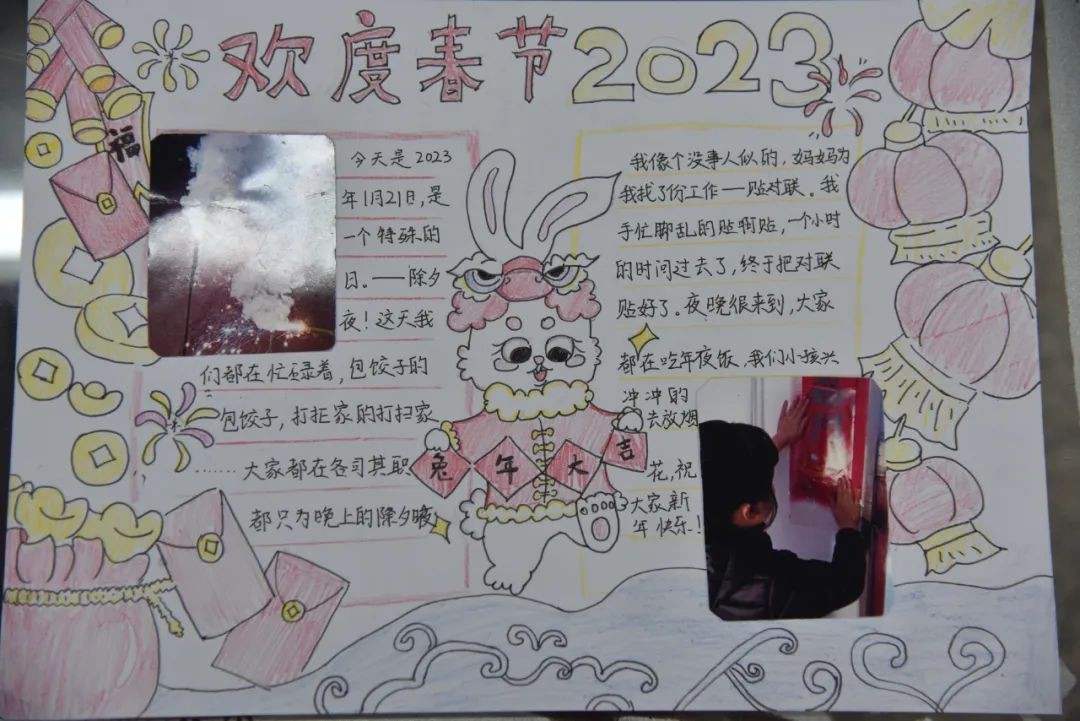 欢度春节2023
福
今天是2023
年1月21日,是
一个特殊的
日。——除夕
夜!这天我
们都在忙碌着,包饺子的
包饺子,打扫家的打扫家
……大家都在各司其职
都只为晚上的除夕夜
兔年大吉
我像个没事人似的,妈妈为
我找了份工作——贴对联。我
手忙脚乱的贴啊贴,一个小时
的时间过去了,终于把对联
贴好了。夜晚很来到,大家
都在吃年夜饭,我们小孩兴
冲冲的
去放烟
花,祝
大家新
年快乐!